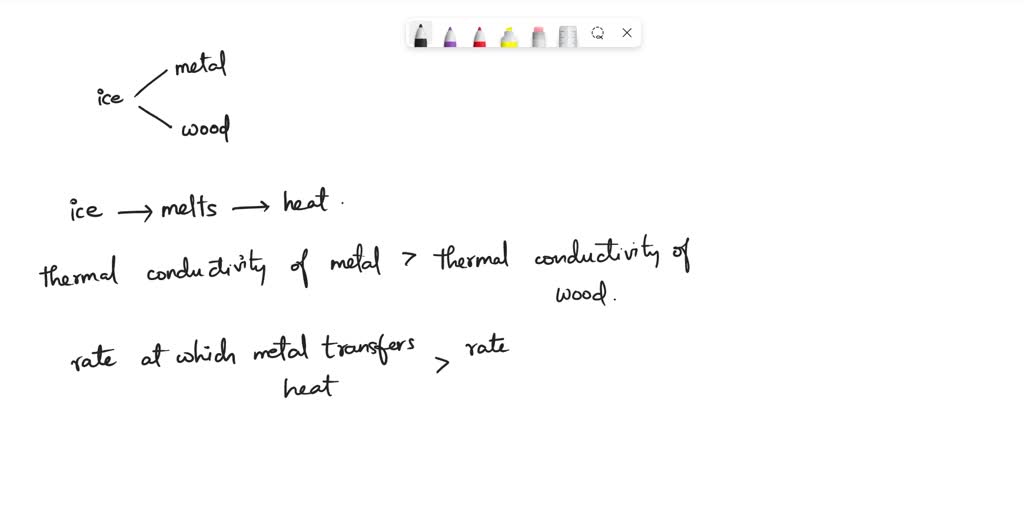 metal
ice
wood
ice → melts → heat.
thermal conductivity of metal > thermal conductivity of
wood.
rate at which metal transfers > rate
heat